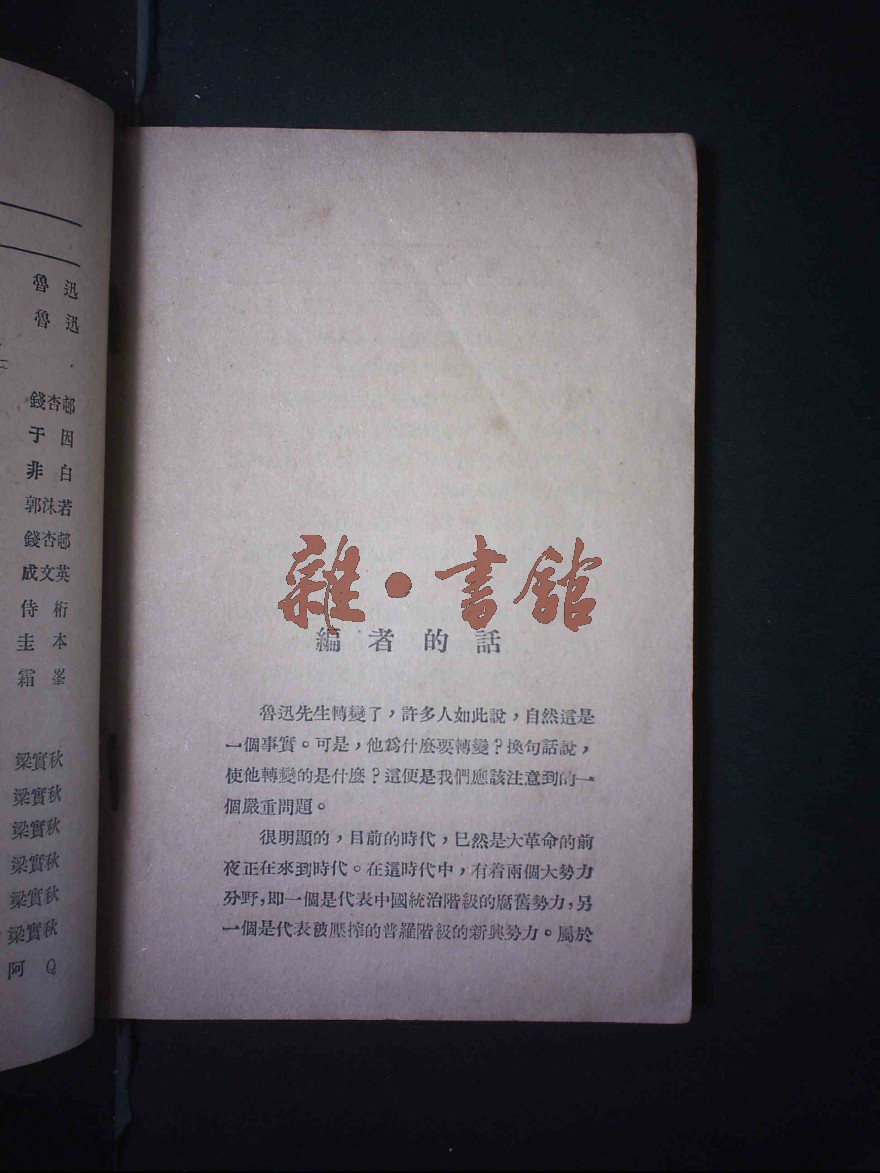 魯 迅
魯 迅
錢杏邨
于 因
非 白
郭沫若
錢杏邨
成文英
侍 桁
圭 本
霜 峯
梁實秋
梁實秋
梁實秋
梁實秋
梁實秋
梁實秋
阿 Q
雜·書館
編者的話
魯迅先生轉變了，許多人如此說，自然這是
一個事實。可是，他爲什麼要轉變？換句話說，
使他轉變的是什麼？這便是我們應該注意到的一
個嚴重問題。
很明顯的，目前的時代，已然是大革命的前
夜正在來到時代。在這時代中，有着兩個大勢力
分野，即一個是代表中國統治階級的腐舊勢力，另
一個是代表被壓搾的普羅階級的新興勢力。屬於